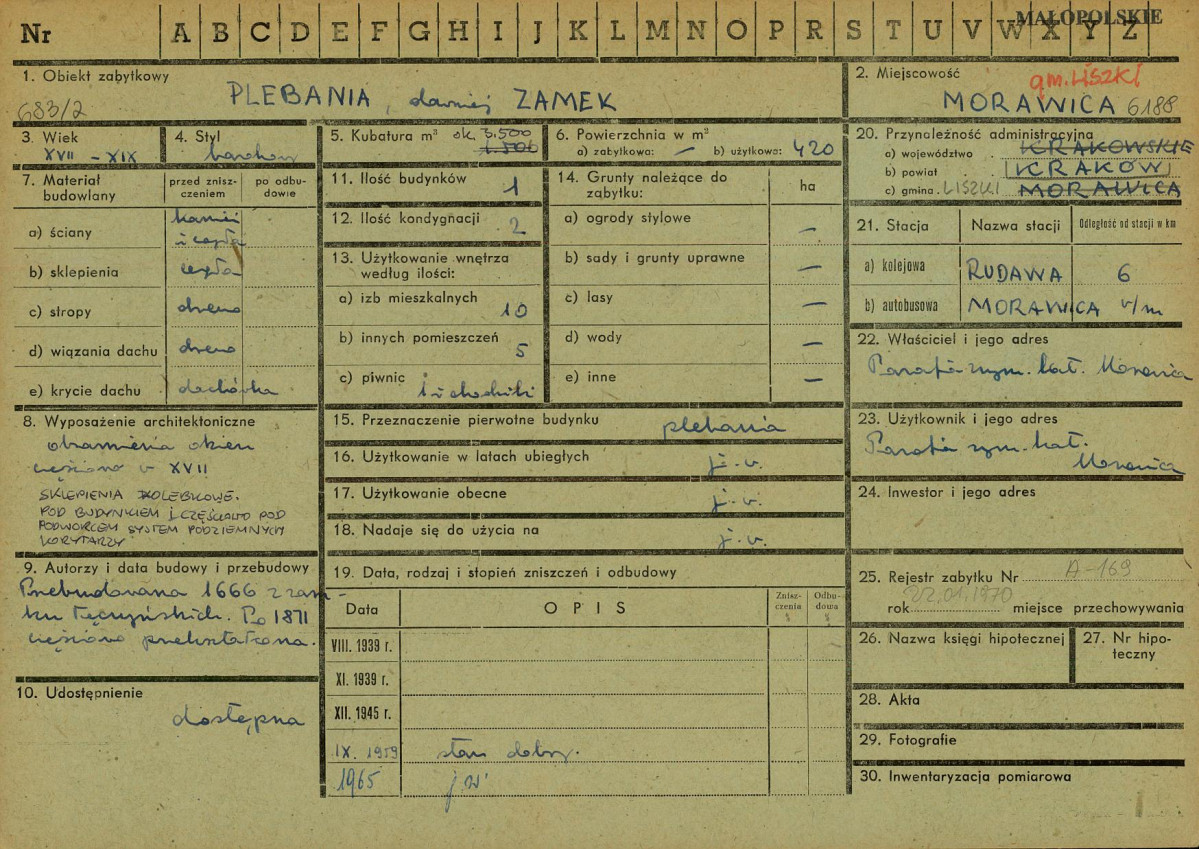 MAŁOPOLSKIE
Nr A B C D E F G H I J K L M N O P R S T U V W X Y Z
1. Obiekt zabytkowy
PLEBANIA, dawniej ZAMEK
683/2
2. Miejscowość
gm. LISZKI
MORAWICA 6188
3. Wiek
XVII - XIX
4. Styl
barokowy
5. Kubatura m³ ok. 3.500
6. Powierzchnia w m²
a) zabytkowa: — b) użytkowa: 420
7. Materiał budowlany
przed zniszczeniem
po odbudowie
a) ściany
kamień
i cegła
b) sklepienia cegła
c) stropy drewno
d) wiązania dachu drewno
e) krycie dachu dachówka
8. Wyposażenie architektoniczne
obramienia okien
częściowo w XVII
SKLEPIENIA KOLEBKOWE.
POD BUDYNKIEM I CZĘŚCIOWO POD
PODWÓRCEM SYSTEM PODZIEMNYCH
KORYTARZY
9. Autorzy i data budowy i przebudowy
Przebudowana 1666 z zam-
ku Tęczyńskich. Po 1871
częściowo przekształcona.
10. Udostępnienie
dostępna
11. Ilość budynków 1
12. Ilość kondygnacji 2
13. Użytkowanie wnętrza
według ilości:
a) izb mieszkalnych
10
b) innych pomieszczeń
5
c) piwnic
1 i chodniki
14. Grunty należące do
zabytku:
ha
a) ogrody stylowe —
b) sady i grunty uprawne —
c) lasy —
d) wody —
e) inne —
15. Przeznaczenie pierwotne budynku plebania
16. Użytkowanie w latach ubiegłych j. w.
17. Użytkowanie obecne j. w.
18. Nadaje się do użycia na j. w.
19. Data, rodzaj i stopień zniszczeń i odbudowy
Data
OPIS
Zniszczenia
Odbudowa
VIII. 1939 r.
XI. 1939 r.
XII. 1945 r.
IX. 1959 stan dobry.
1965 jw
20. Przynależność administracyjna
a) województwo KRAKOWSKIE
b) powiat KRAKÓW
c) gmina LISZKI MORAWICA
21. Stacja
Nazwa stacji
Odległość od stacji w km
a) kolejowa RUDAWA 6
b) autobusowa MORAWICA v/m
22. Właściciel i jego adres
Parafia rzym. kat. Morawica
23. Użytkownik i jego adres
Parafia rzym. kat.
Morawica
24. Inwestor i jego adres
25. Rejestr zabytku Nr A-169
rok 22.01.1970 miejsce przechowywania
26. Nazwa księgi hipotecznej
27. Nr hipoteczny
28. Akta
29. Fotografie
30. Inwentaryzacja pomiarowa